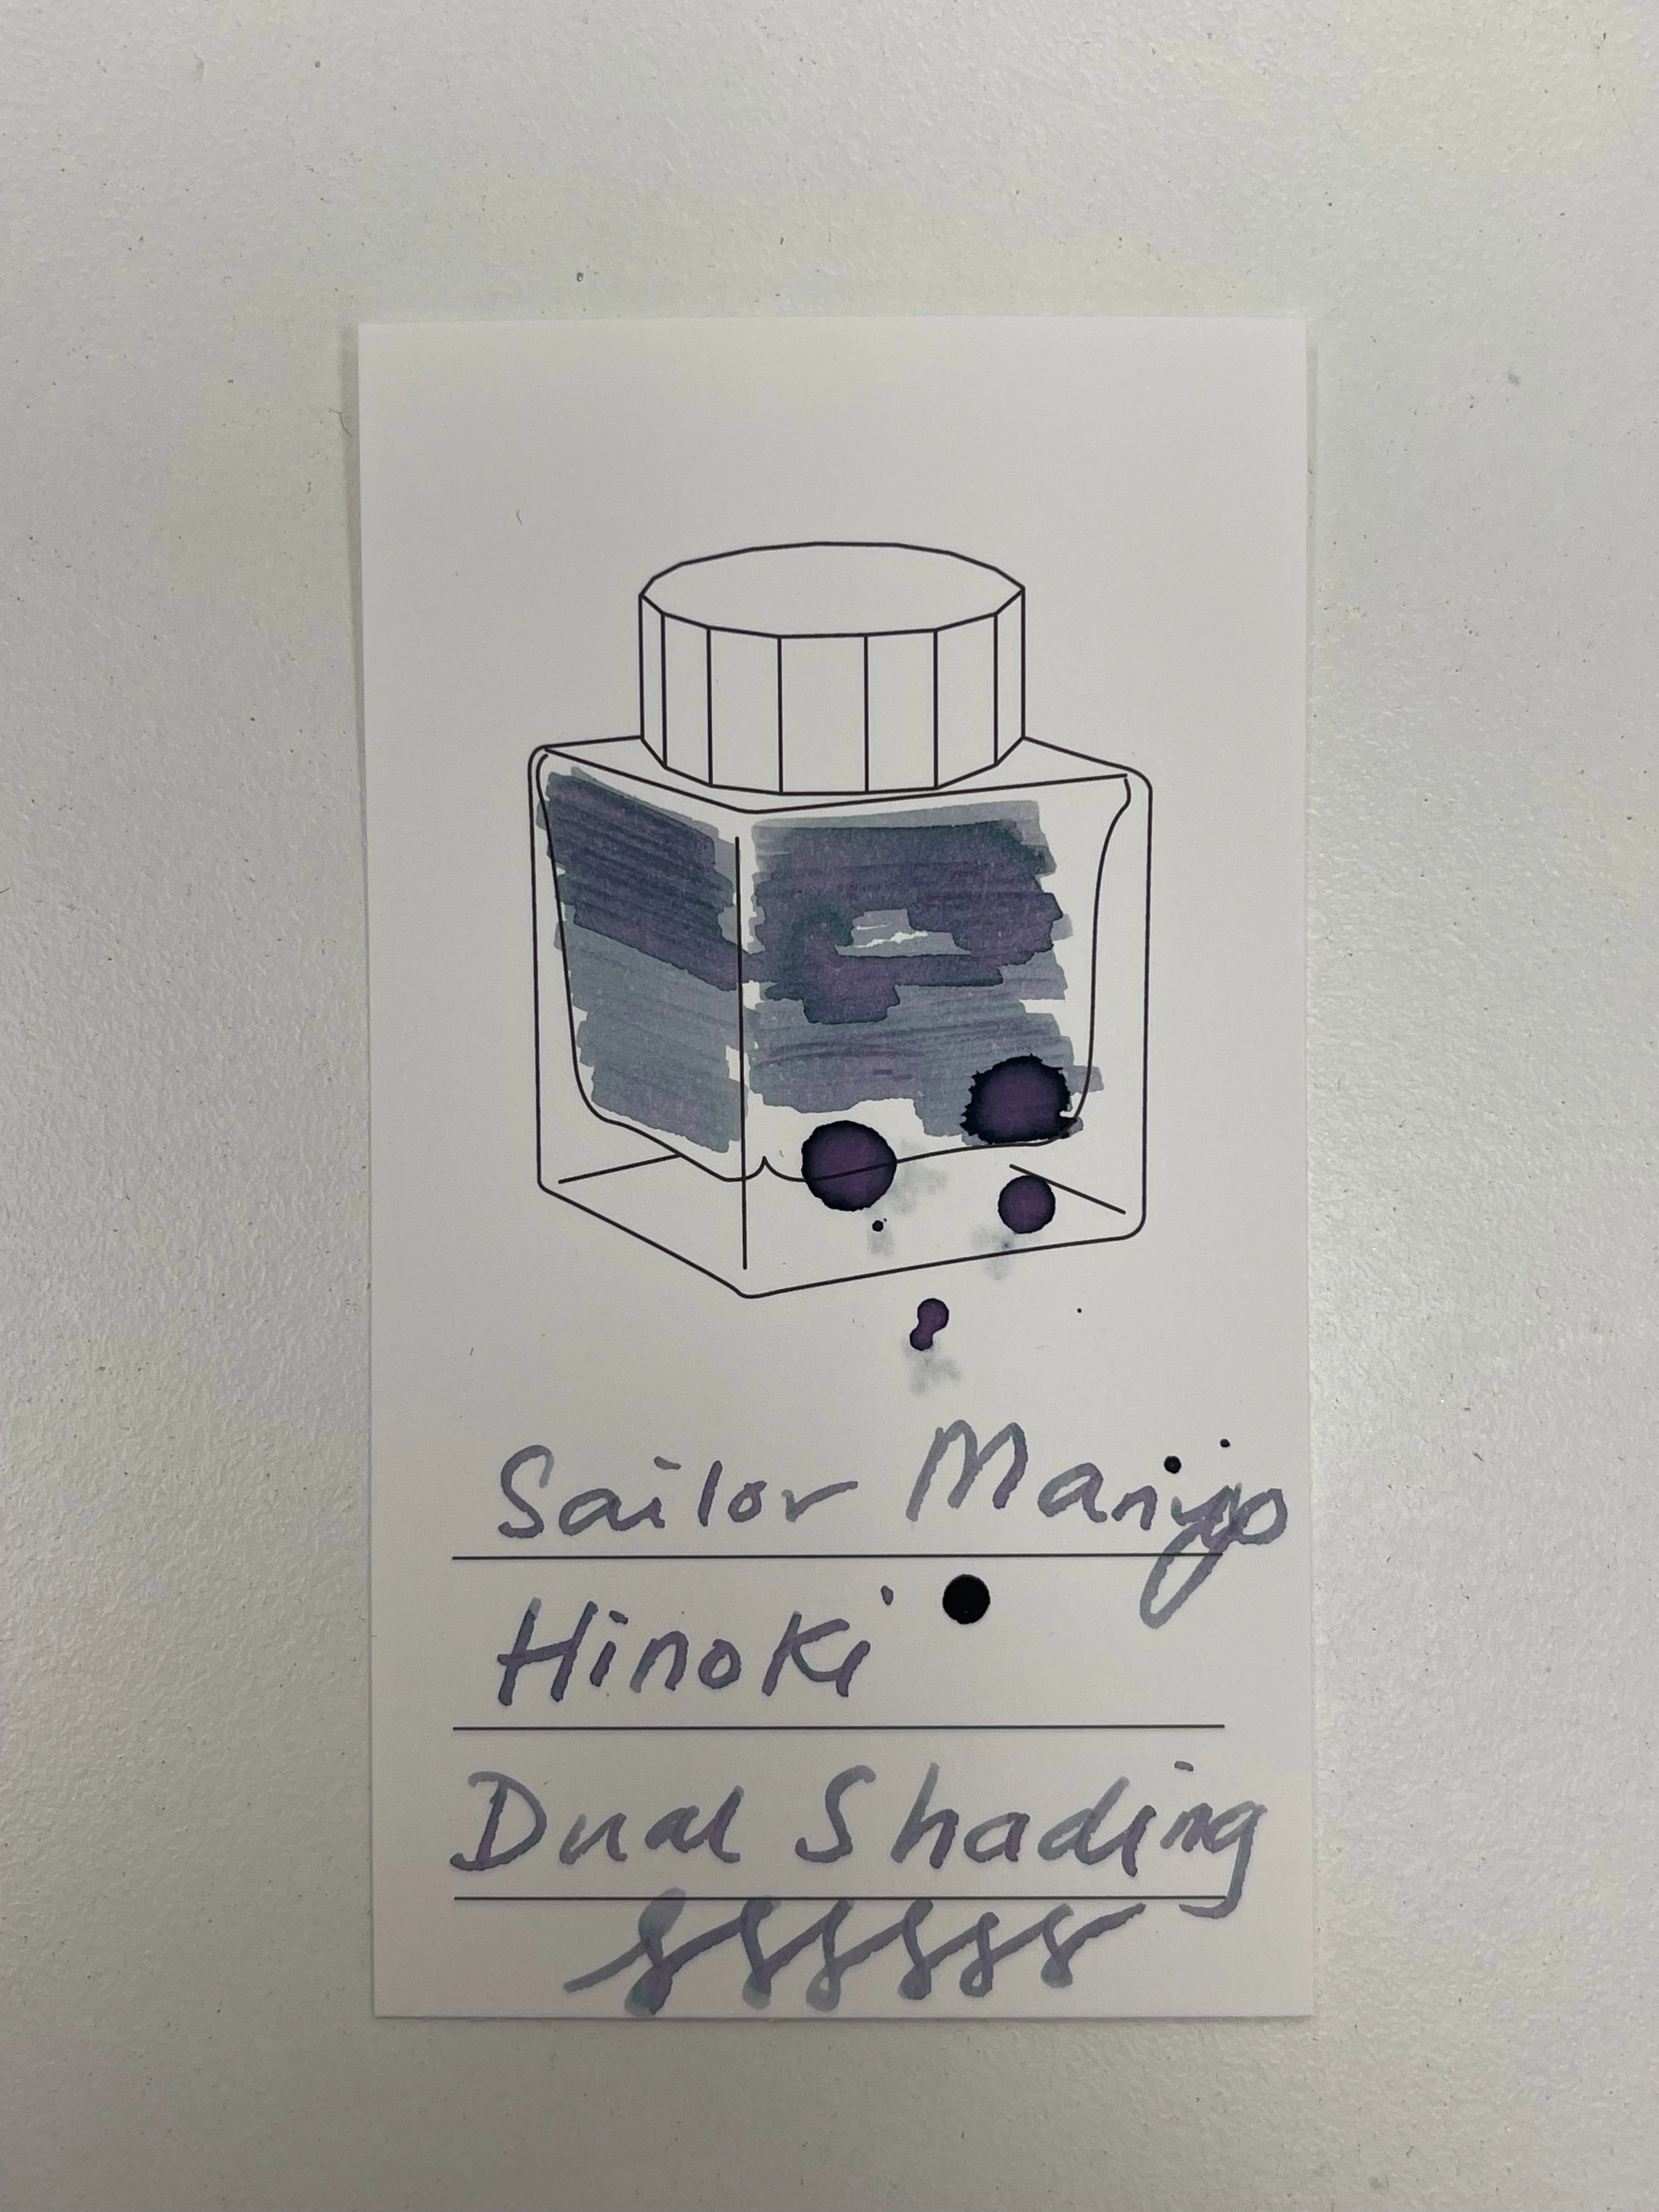 Sailor Manyo
Hinoki
Dual Shading